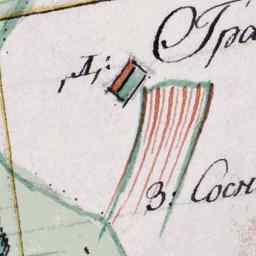 Гра
,Д,:
3: Сосн